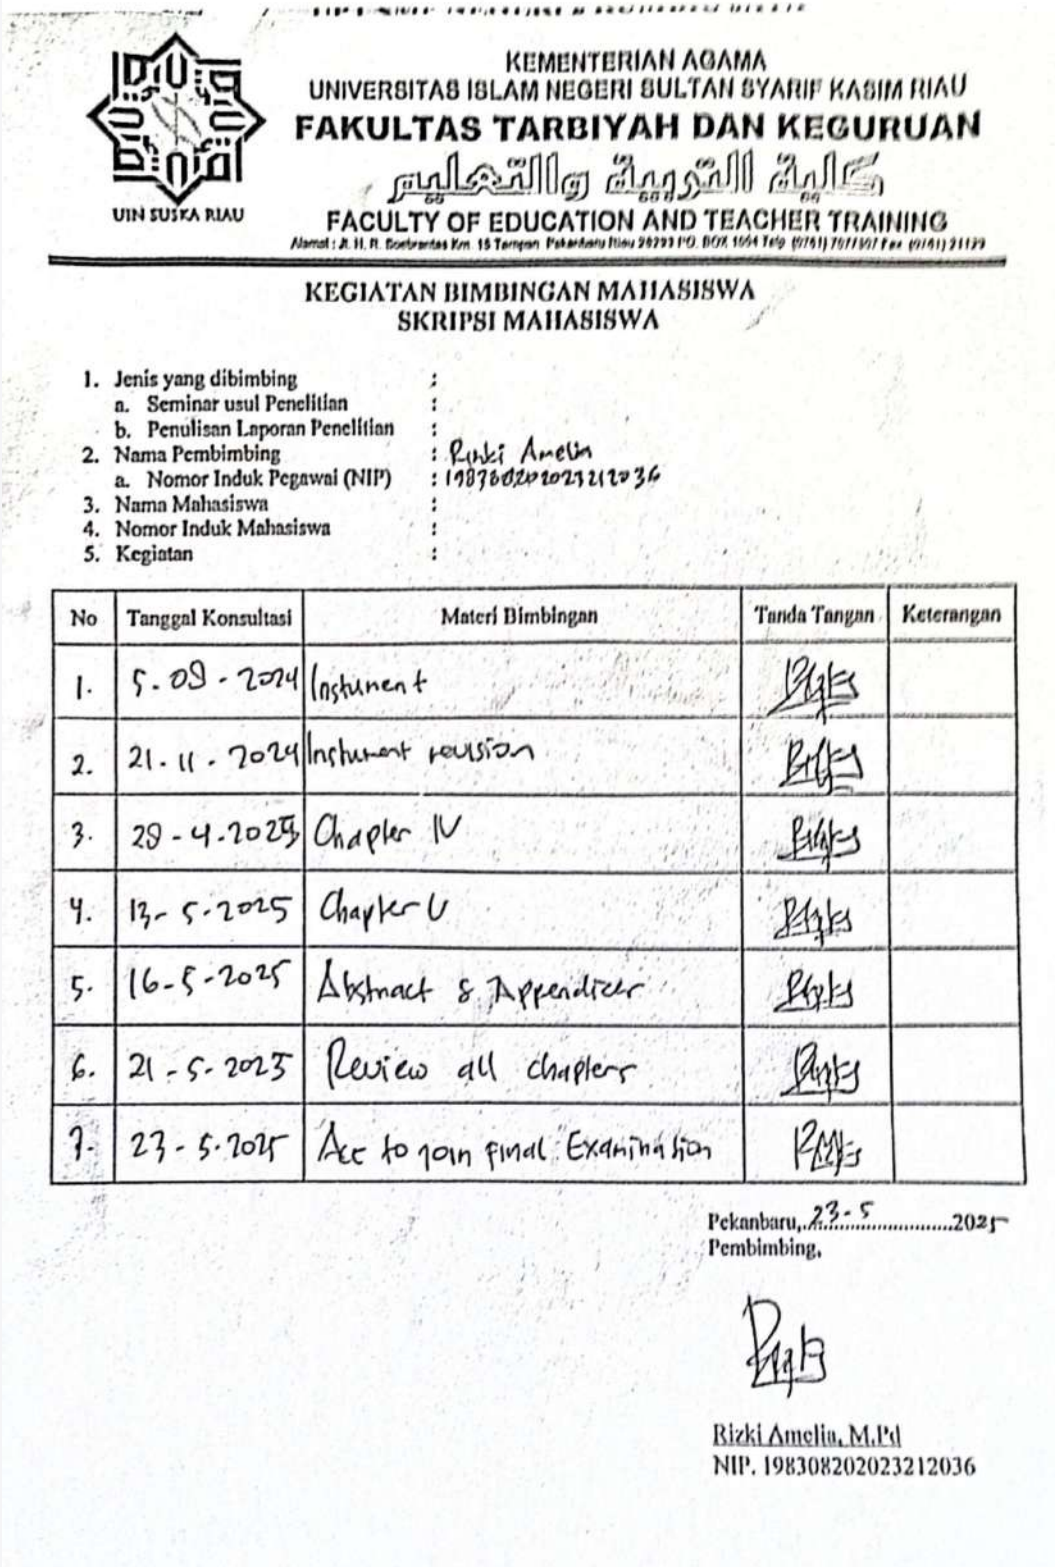 UIN SUSKA RIAU
KEMENTERIAN AGAMA
UNIVERSITAS ISLAM NEGERI SULTAN SYARIF KASIM RIAU
FAKULTAS TARBIYAH DAN KEGURUAN
كلية التربية والتعليم
FACULTY OF EDUCATION AND TEACHER TRAINING
Alamat : Jl. H. R. Soebrantas Km. 15 Tampan Pekanbaru Riau 28293 PO. BOX 1004 Telp (0761) Fax (0761) 21129
KEGIATAN BIMBINGAN MAHASISWA
SKRIPSI MAHASISWA
1. Jenis yang dibimbing :
a. Seminar usul Penelitian :
b. Penulisan Laporan Penelitian :
2. Nama Pembimbing : Rizki Amelia
a. Nomor Induk Pegawai (NIP) :
3. Nama Mahasiswa :
4. Nomor Induk Mahasiswa :
5. Kegiatan :
No Tanggal Konsultasi Materi Bimbingan Tanda Tangan Keterangan
1. 5. 09 - 2024 Instument
2. 21. 11 . 2024 Instument revision
3. 29 - 4. 2025 Chapter IV
4. 13 - 5 - 2025 Chapter V
5. 16 - 5 - 2025 Abstract & Appendices
6. 21 - 5 - 2025 Review all chapters
7. 23 - 5. 2025 Acc to join final Examination
Pekanbaru, 23 - 5 2025
Pembimbing,
Rizki Amelia, M.Pd
NIP. 198308202023212036